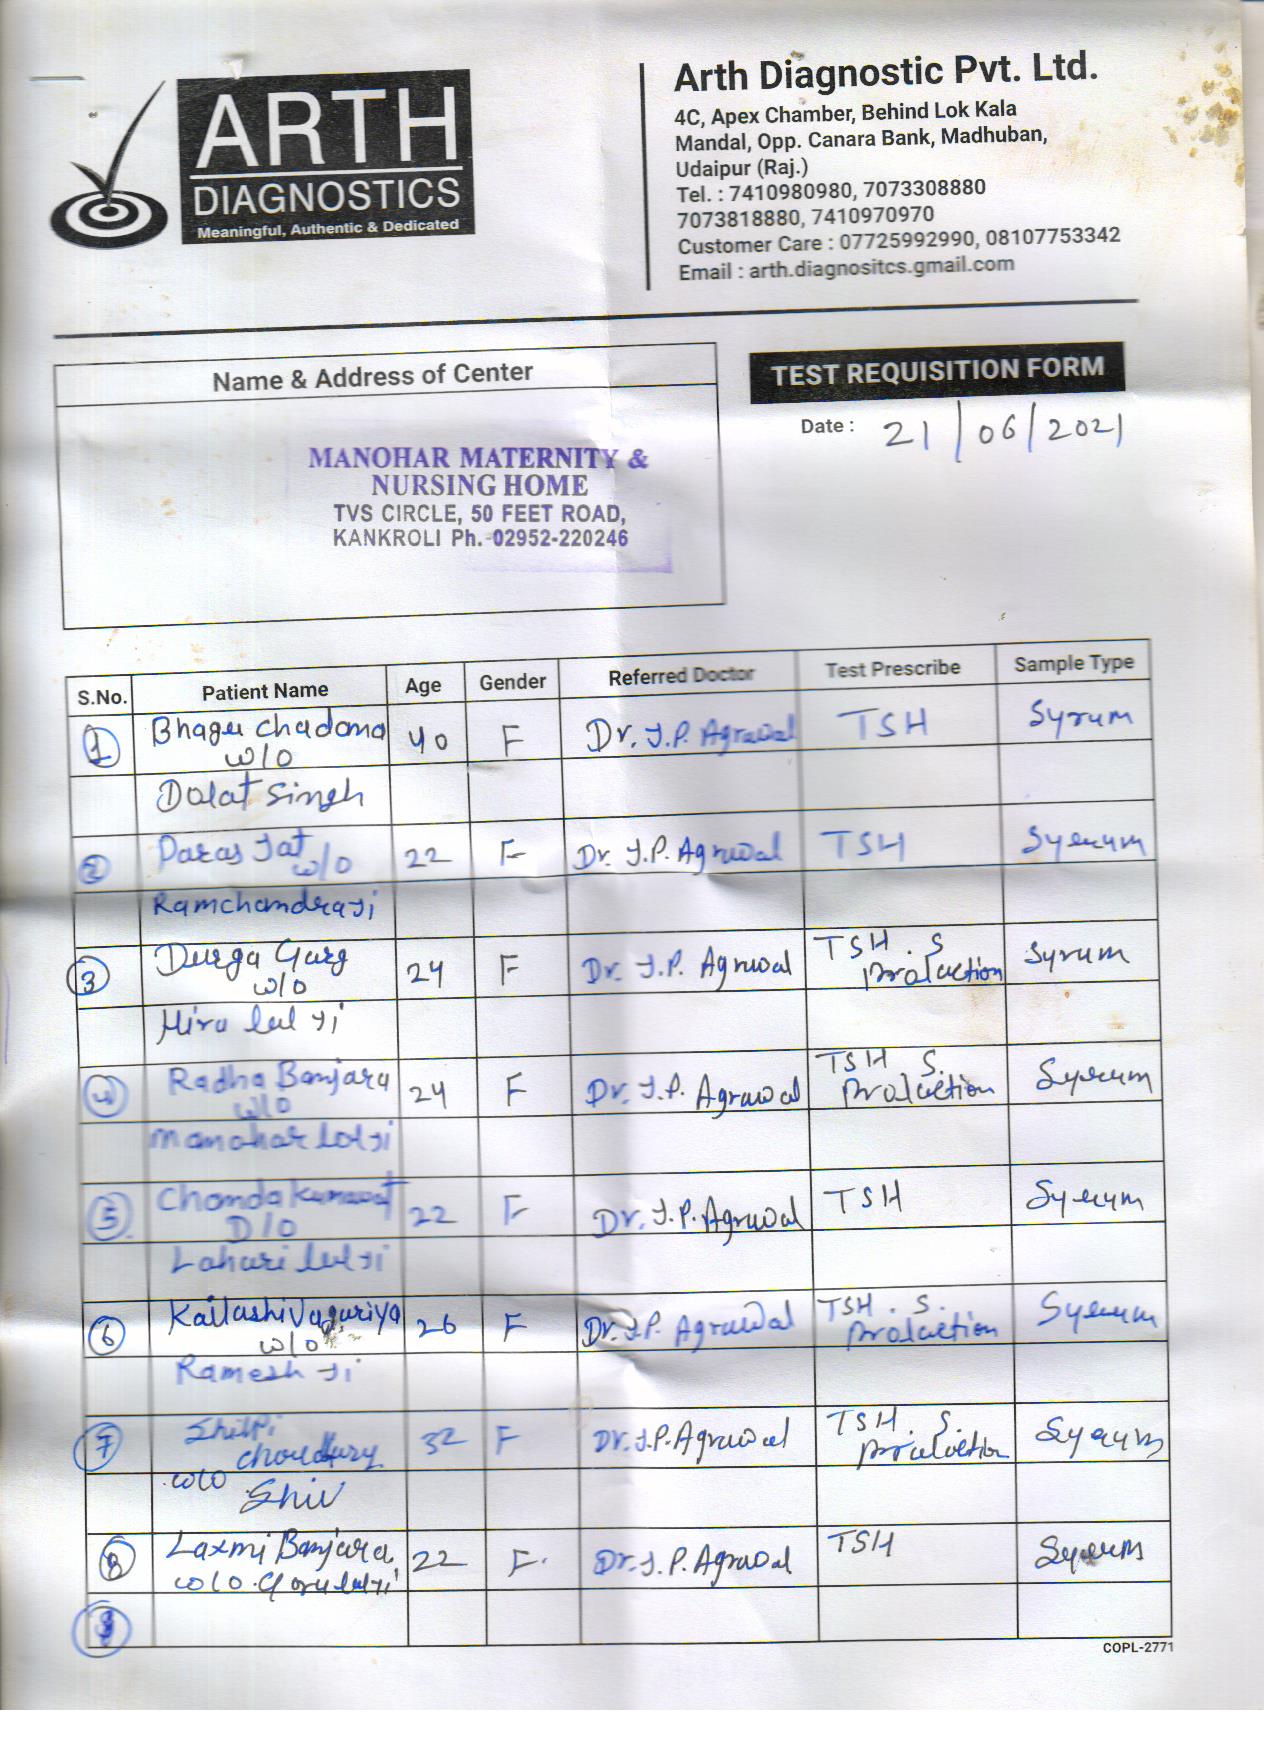 ARTH
DIAGNOSTICS
Meaningful, Authentic & Dedicated
Arth Diagnostic Pvt. Ltd.
4C, Apex Chamber, Behind Lok Kala
Mandal, Opp. Canara Bank, Madhuban,
Udaipur (Raj.)
Tel. : 7410980980, 7073308880
7073818880, 7410970970
Customer Care : 07725992990, 08107753342
Email : arth.diagnositcs.gmail.com
Name & Address of Center
MANOHAR MATERNITY &
NURSING HOME
TVS CIRCLE, 50 FEET ROAD,
KANKROLI Ph. 02952-220246
TEST REQUISITION FORM
Date : 21/06/2021
S.No. Patient Name Age Gender Referred Doctor Test Prescribe Sample Type
1 Bhagu Chadana 40 F Dr. J.P. Agrawal TSH Syrum
w/o
Dalat Singh
2 Paras Jat w/o 22 F Dr. J.P. Agrwal TSH Syerum
Ramchandra Ji
3 Durga Garg 24 F Dr. J.P. Agrwal TSH . S Syrum
w/o Prolaction
Hira lal Ji
4 Radha Banjara 24 F Dr. J.P. Agrawal TSH S. Syerum
w/o Prolaction
Manohar lal Ji
5 Chanda Kumawat 22 F Dr. J.P. Agrawal TSH Syerum
D/O
Lahari lal Ji
6 Kailashi Vaguriya 26 F Dr. J.P. Agrawal TSH . S. Syerum
w/o Prolaction
Ramesh Ji
7 Shilpi 32 F Dr. J.P. Agrawal TSH. S. Syerum
Choudhury Prolaction
w/o Shiv
8 Laxmi Banjara 22 F. Dr. J.P. Agrawal TSH Syerum
w/o Goru lal Ji
COPL-2771